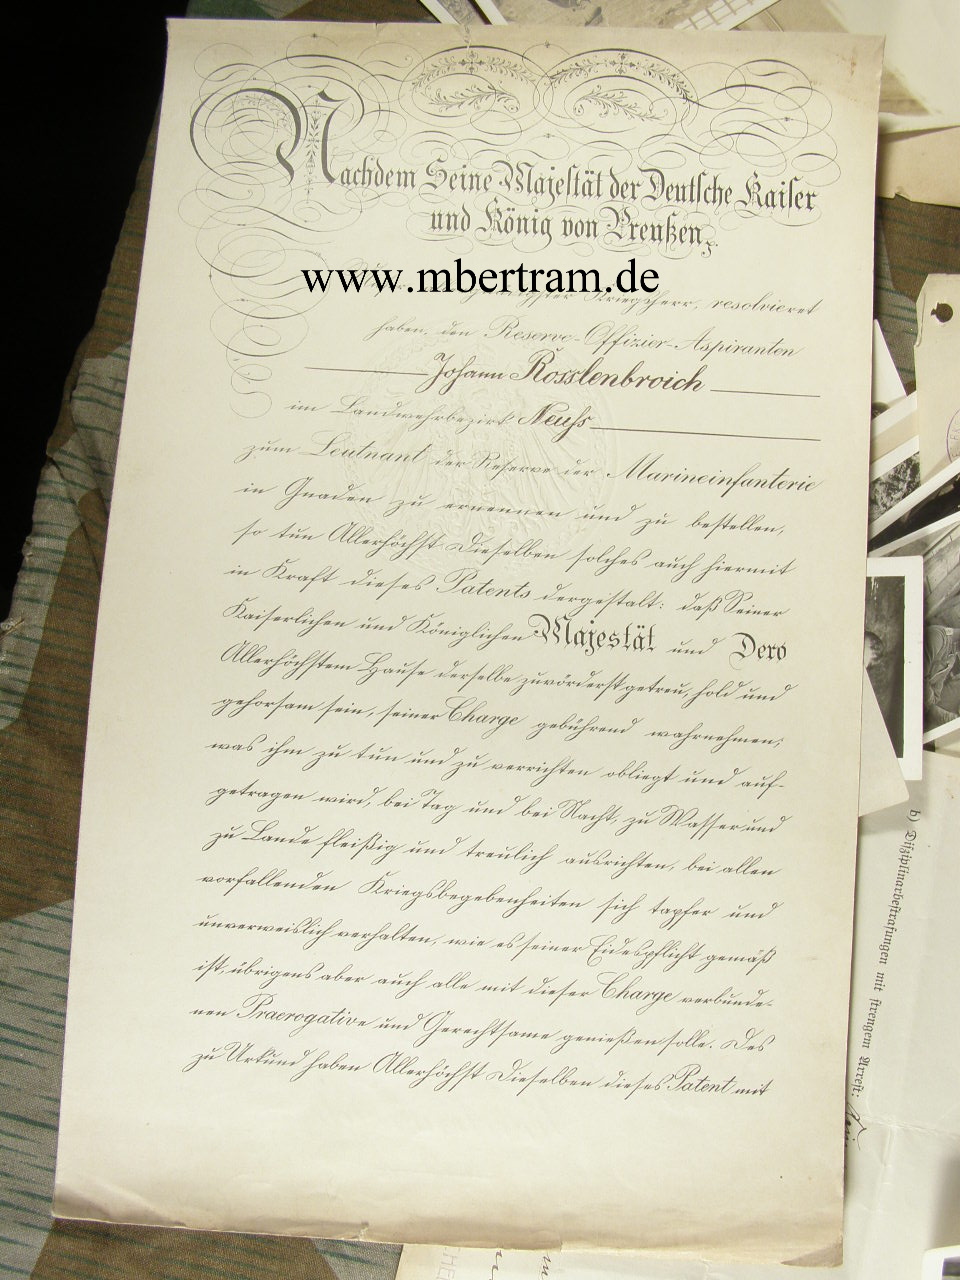 Nachdem Seine Majestät der Deutsche Kaiser
und König von Preußen,
www.mbertram.de
Kriegsherr, resolvieret
haben, den Reserve-Offizier-Aspiranten
Johann Rosslenbroich
im Landwehrbezirk Neuss
zum Leutnant der Reserve der Marineinfanterie
in Gnaden zu ernennen und zu bestellen,
so tun Allerhöchst Dieselben solches auch hiermit
in Kraft dieses Patents dergestalt: daß Seiner
Kaiserlichen und Königlichen Majestät und Dero
Allerhöchstem Hause derselbe zuvörderst getreu, hold und
gehorsam sein, seiner Charge gebührend wahrnehmen,
was ihm zu tun und zu verrichten obliegt und auf-
getragen wird, bei Tag und bei Nacht, zu Wasser und
zu Lande fleißig und treulich ausrichten, bei allen
vorfallenden Kriegsbegebenheiten sich tapfer und
unverweislich verhalten, wie es seiner Eidespflicht gemäß
ist, übrigens aber auch alle mit dieser Charge verbunde-
nen Praerogative und Gerechtsame genießen solle. Des
zu Urkund haben Allerhöchst Dieselben dieses Patent mit
b) Disziplinarbestrafungen mit strengem Arrest: